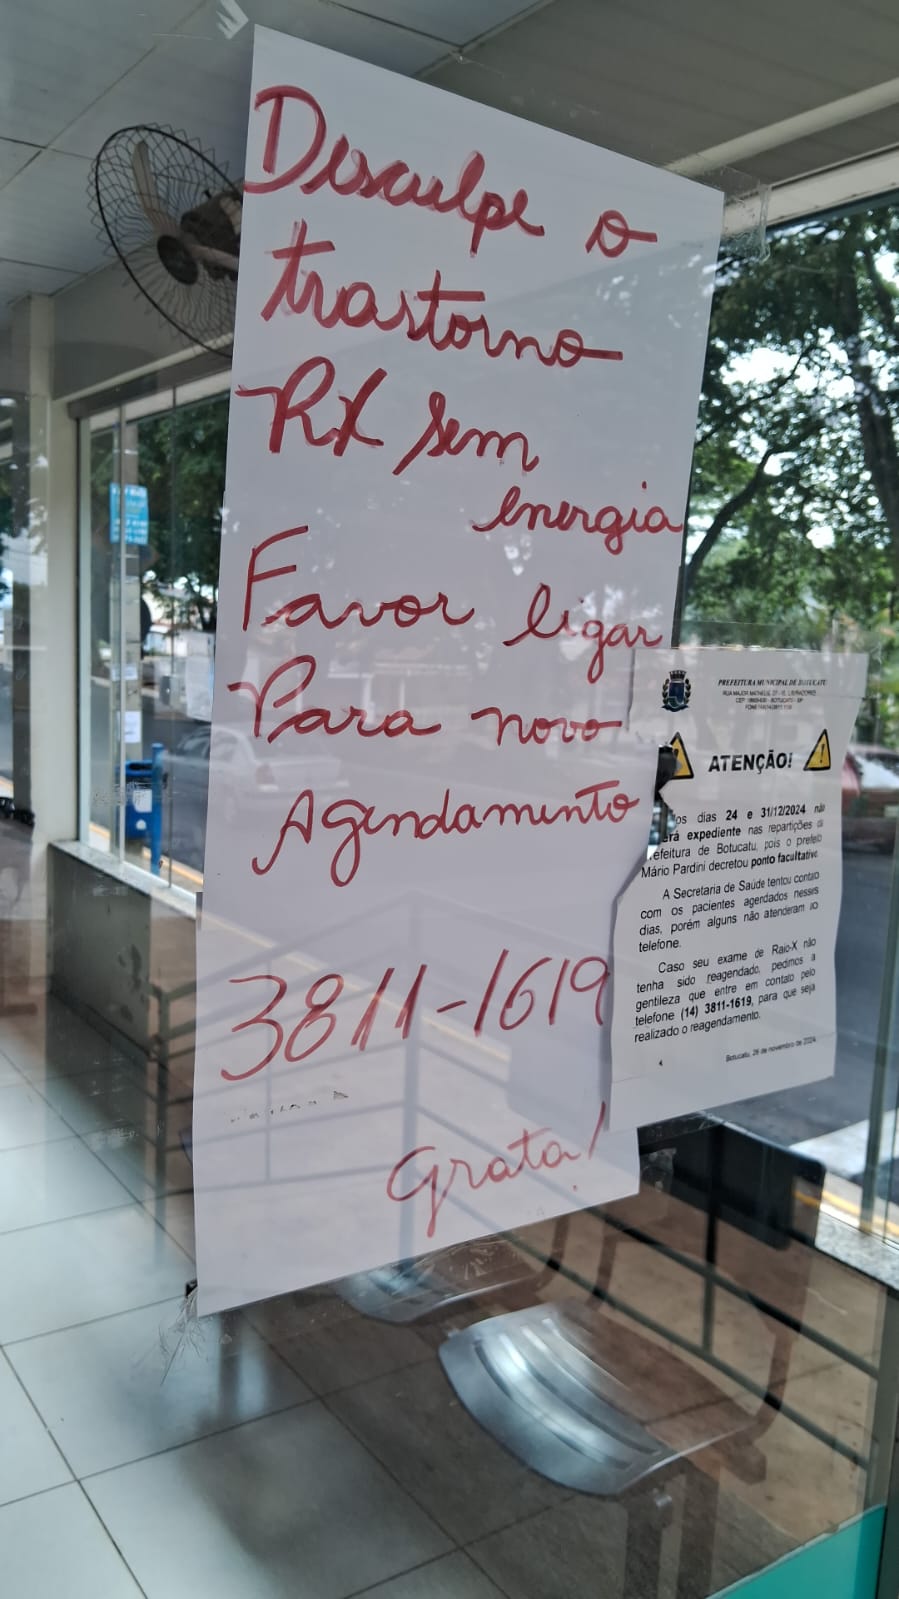 Desculpe o
trastorno
RX sem
energia
Favor ligar
Para novo
Agendamento
3811-1619
Grata!
PREFEITURA MUNICIPAL DE BOTUCATU
ATENÇÃO!
dias 24 e 31/12/2024
expediente nas repartições
Prefeitura de Botucatu, pois o prefeito
Mário Pardini decretou ponto facultativo.
A Secretaria de Saúde tentou contato
com os pacientes agendados nesses
dias, porém alguns não atenderam ao
telefone.
Caso seu exame de Raio-X não
tenha sido reagendado, pedimos a
gentileza que entre em contato pelo
telefone (14) 3811-1619, para que seja
realizado o reagendamento.
Botucatu, 26 de novembro de 2024.